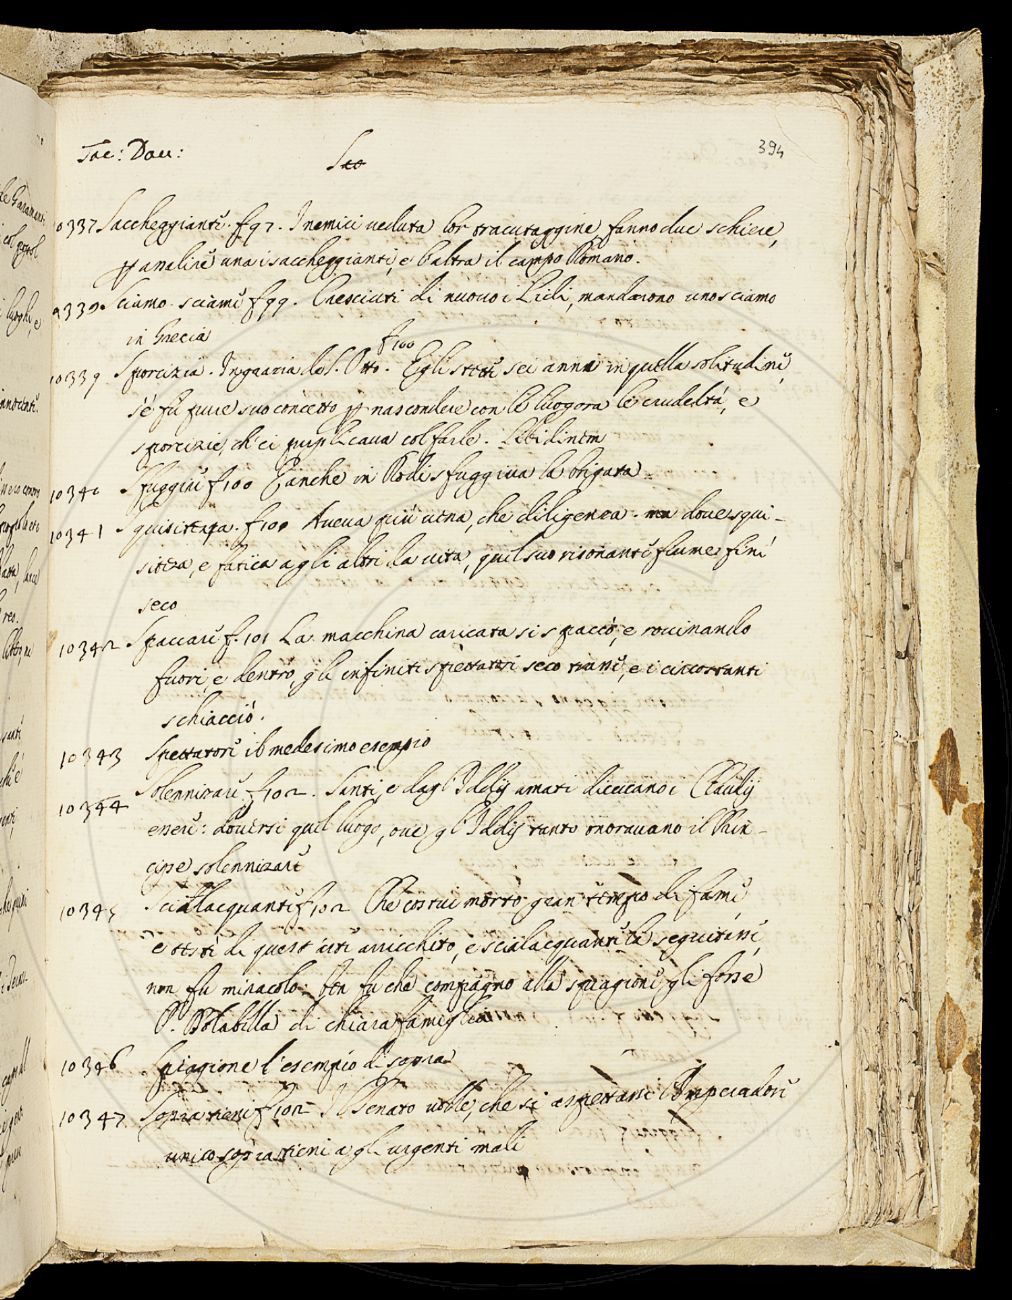 Tac: Dav:
394
10337 Saccheggianti. f 97. I nemici veduta lor tracutaggine fanno due schiere,
p assalire una i saccheggianti, e l'altra il campo Romano.
Sciamo. sciami f 99. Cresciuti di nuovo i Lidi, mandarono uno sciamo
in Grecia
f 100
10339 Sporcizia. Egli stette sei anni in quella solitudine,
s'è fu pure suo concetto p nascondere con le luogora le crudeltà, e
sporcizie, ch'ei pubblicava col farle.
10340 Sfuggire f 100 E anche in Rodi sfuggiva la brigata
10341 Squisitezza. f 100 Aveva più vena, che diligenza. dove squi-
sitezza, e fatica agli altri da vita, quel suo risonante fiume finì
seco
10342 Spaccare f. 101 La macchina caricata si spaccò, e rovinando
fuori, e dentro, gl'infiniti spettatori seco trasse, e i circostanti
schiacciò.
10343 Spettatori il medesimo esempio
10344 Solennizare f 102. Santi, e dagl'Iddij amati dicevano i Claudij
essere: doversi quel luogo, ove gl'Iddij tanto onoravano il Prin-
cipe solennizare
10345 Scialacquante f 102 Che costui morto gran tempo di fame
e testè di quest'arte arricchito, e scialacquante la seguitasse,
non fu miracolo: fu che compagno alla spiagione gli fosse
P. Dolabella di chiara famiglia
10346 Spiagione l'esempio di sopra
10347 Sopratieni f 102 Il Senato volle, che si aspettassi l'Imperadore
unico sopratieni agl'urgenti mali